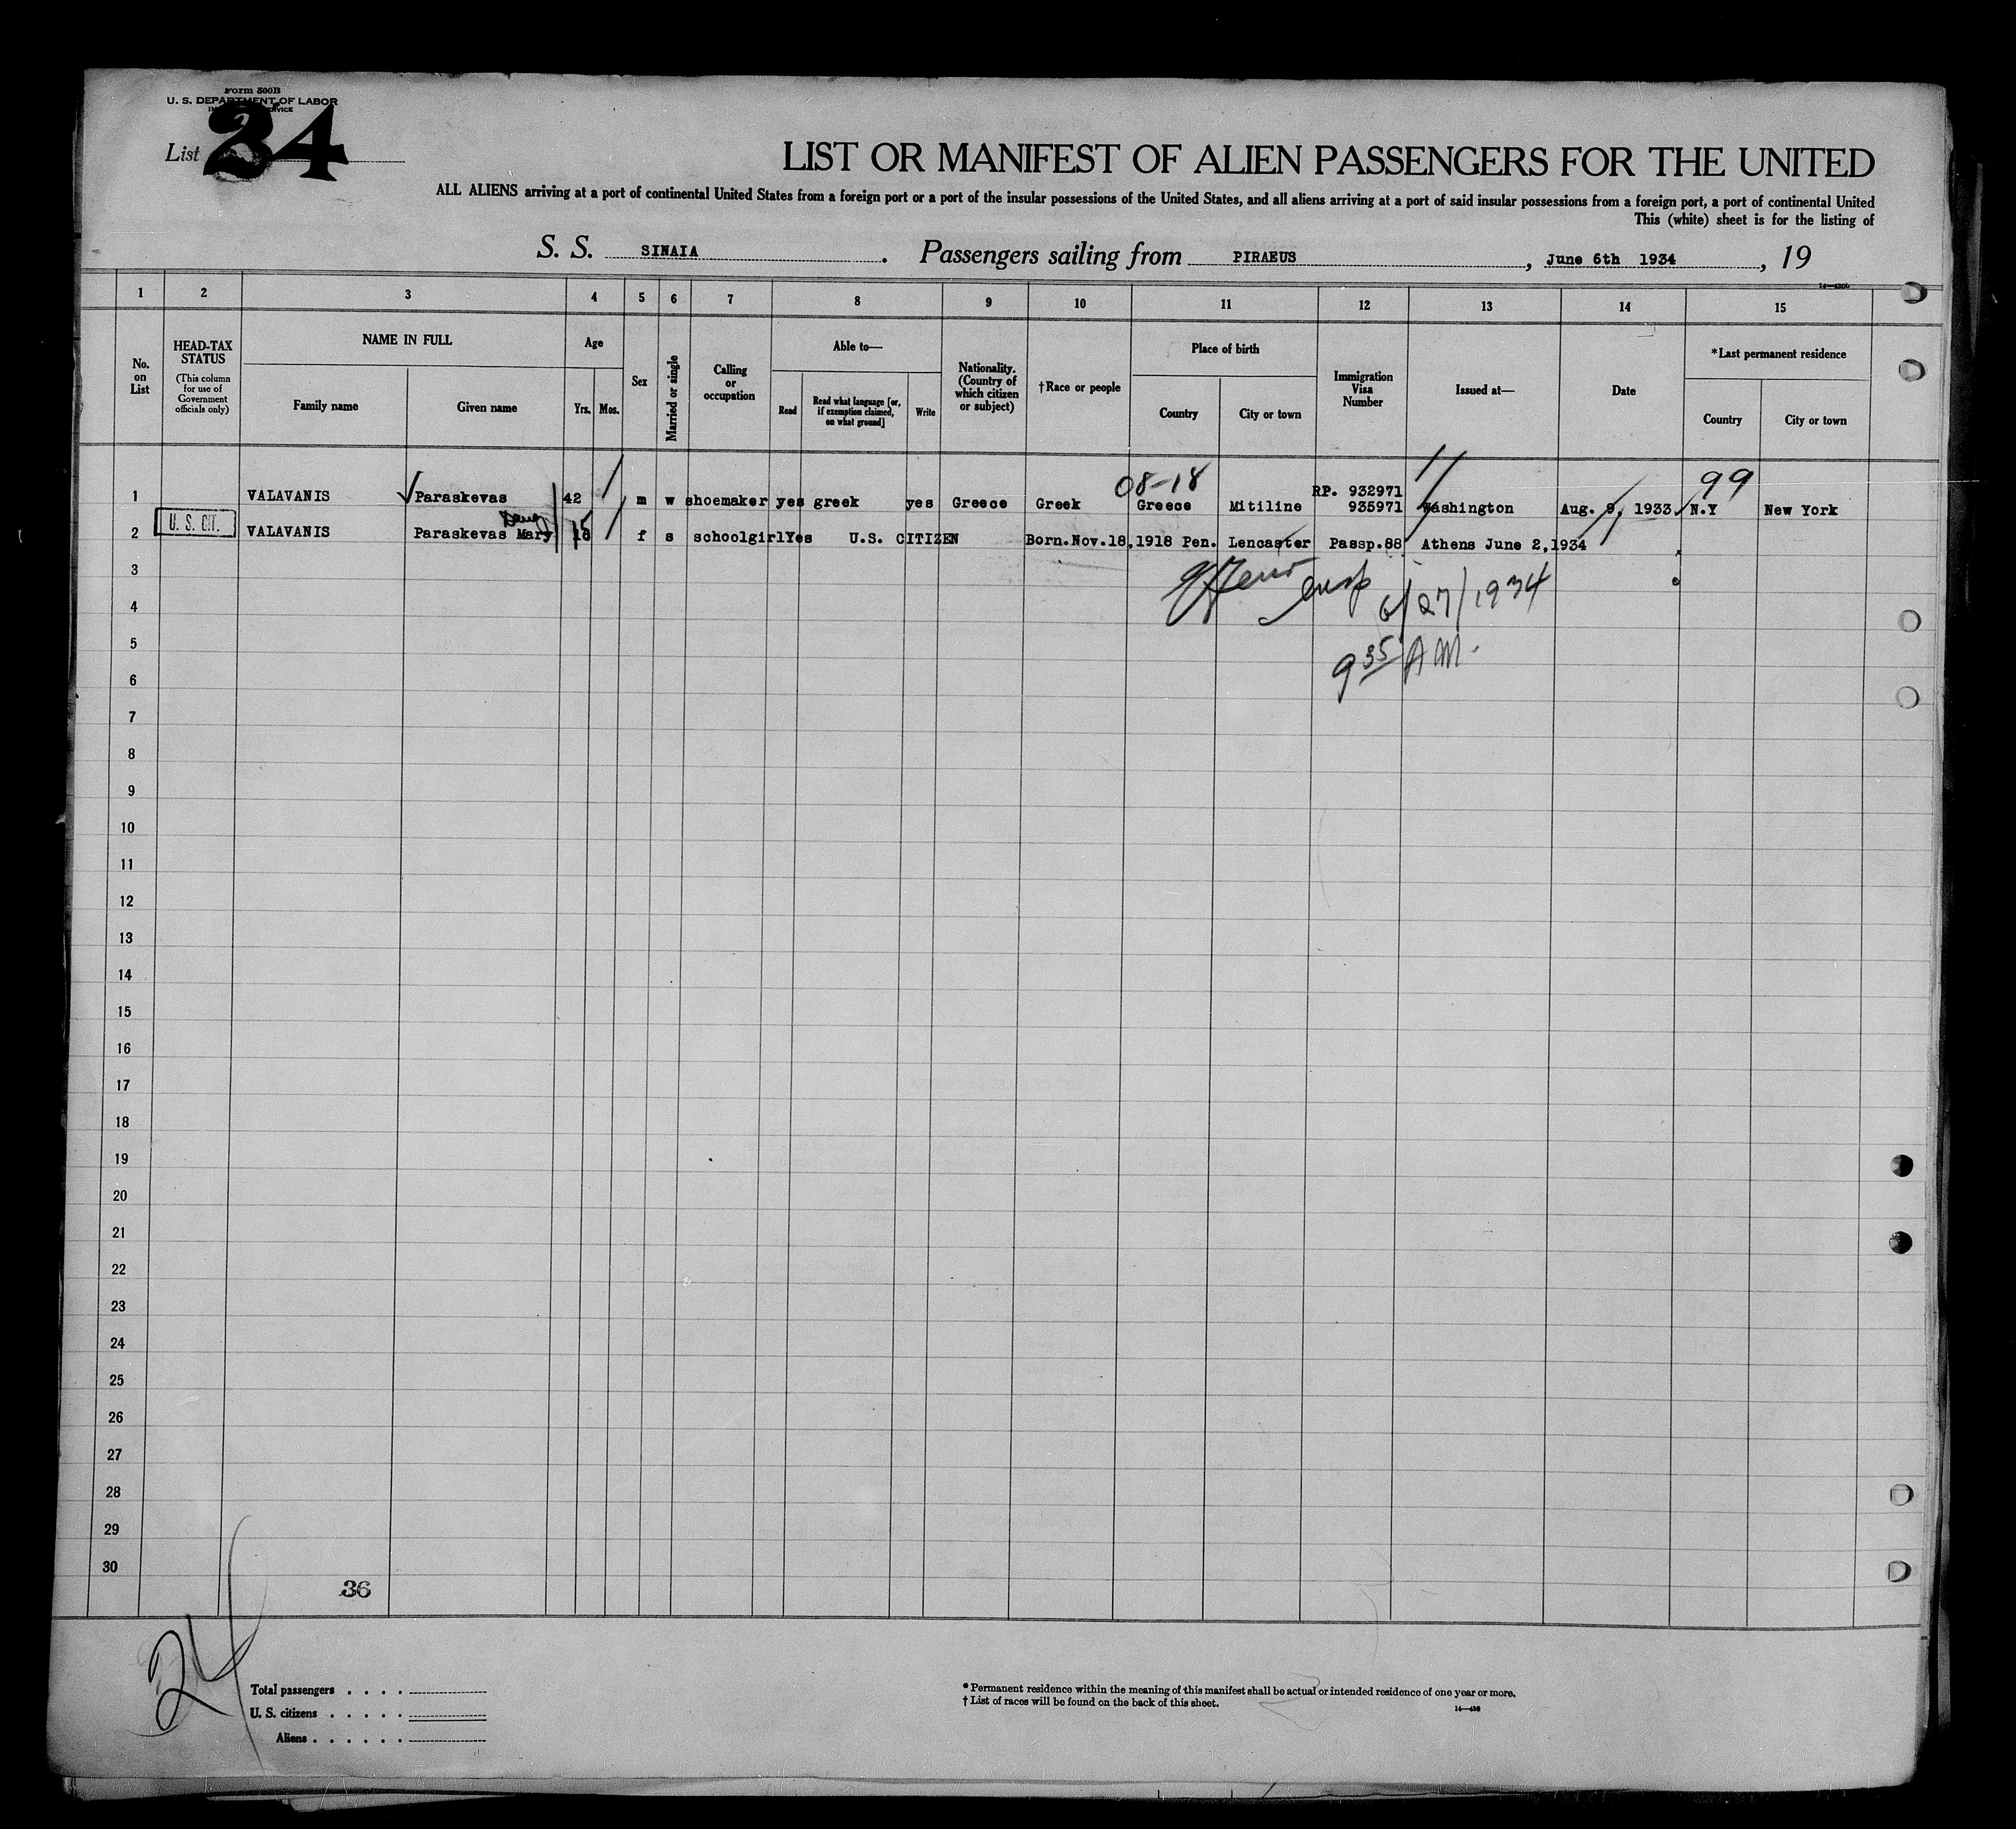 Form 500B
U. S. DEPARTMENT OF LABOR
List 24
LIST OR MANIFEST OF ALIEN PASSENGERS FOR THE UNITED
ALL ALIENS arriving at a port of continental United States from a foreign port or a port of the insular possessions of the United States, and all aliens arriving at a port of said insular possessions from a foreign port, a port of continental United
This (white) sheet is for the listing of
S. S. SINAIA. Passengers sailing from PIRAEUS, June 6th 1934, 19
14—430b
1 2 3 4 5 6 7 8 9 10 11 12 13 14 15
No. on List
HEAD-TAX STATUS (This column for use of Government officials only)
NAME IN FULL
Family name Given name
Age
Yrs. Mos.
Sex
Married or single
Calling or occupation
Able to—
Read Read what language [or, if exemption claimed, on what ground] Write
Nationality. (Country of which citizen or subject)
†Race or people
Place of birth
Country City or town
Immigration Visa Number
Issued at—
Date
*Last permanent residence
Country City or town
08-18 99
RP. 932971
1 VALAVANIS Paraskevas 42 m w shoemaker yes greek yes Greece Greek Greece Mitiline 935971 Washington Aug. 9, 1933. N.Y New York
Daug
2 U. S. CIT. VALAVANIS Paraskevas Mary 15 f s schoolgirl Yes U.S. CITIZEN Born.Nov.18,1918 Pen. Lencaster Passp.88 Athens June 2,1934
3
insp 6/27/1934
4
5
9 35 A M.
6
7
8
9
10
11
12
13
14
15
16
17
18
19
20
21
22
23
24
25
26
27
28
29
30
36
24
Total passengers . . . .
U. S. citizens . . . . .
Aliens . . . . . .
* Permanent residence within the meaning of this manifest shall be actual or intended residence of one year or more.
† List of races will be found on the back of this sheet.
14—430